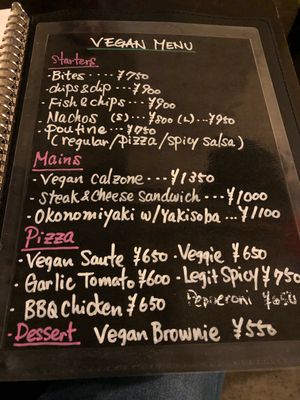 VEGAN MENU
Starters
・Bites ････ ¥750
・chips&dip ･･･ ¥900
・Fish & chips ･･･ ¥900
・Nachos (S) ･･･ ¥500 (L) ･･ ¥950
・Poutine ･･･ ¥750
(regular/pizza/spicy salsa)
Mains
・Vegan Calzone ･･･ ¥1350
・Steak & Cheese Sandwich ･･･ ¥1000
・Okonomiyaki w/ Yakisoba ･･･ ¥1100
Pizza
・Vegan Saute ¥650 ・Veggie ¥650
・Garlic Tomato ¥600 ・Legit Spicy ¥750
・BBQ Chicken ¥650 Pepperoni ¥650
・Dessert Vegan Brownie ¥550